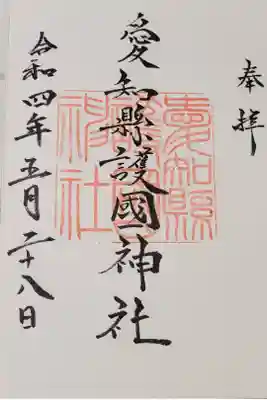 奉拝
愛知縣護國神社
令和四年五月二十八日
愛知縣護國神社